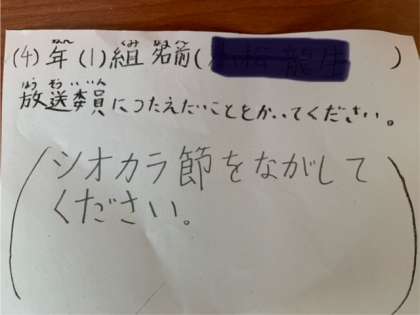 (4)年(1)組 名前(　　　)
放送委員につたえたいことをかいてください。
シオカラ節をながして
ください。